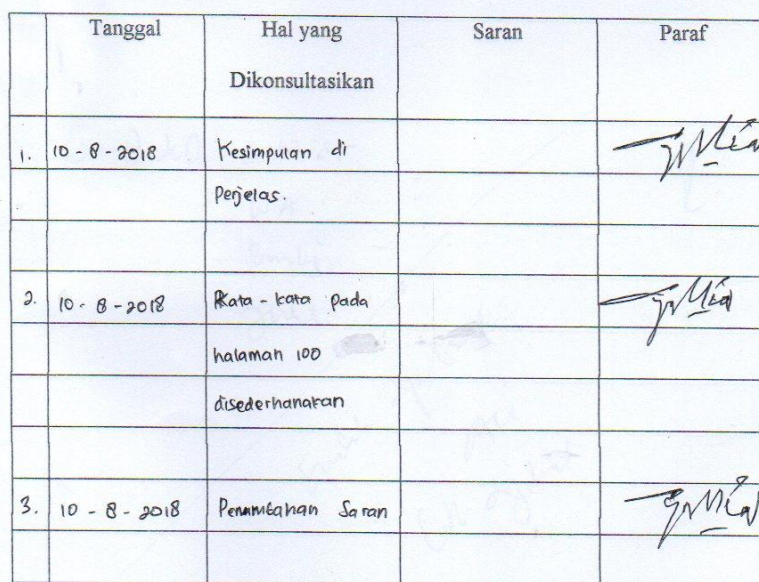 Tanggal Hal yang Saran Paraf
Dikonsultasikan
1. 10-8-2018 Kesimpulan di
Perjelas.
2. 10-8-2018 Kata-kata pada
halaman 100
disederhanakan
3. 10-8-2018 Penambahan Saran